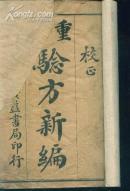 校正
重驗方新編
益書局印行